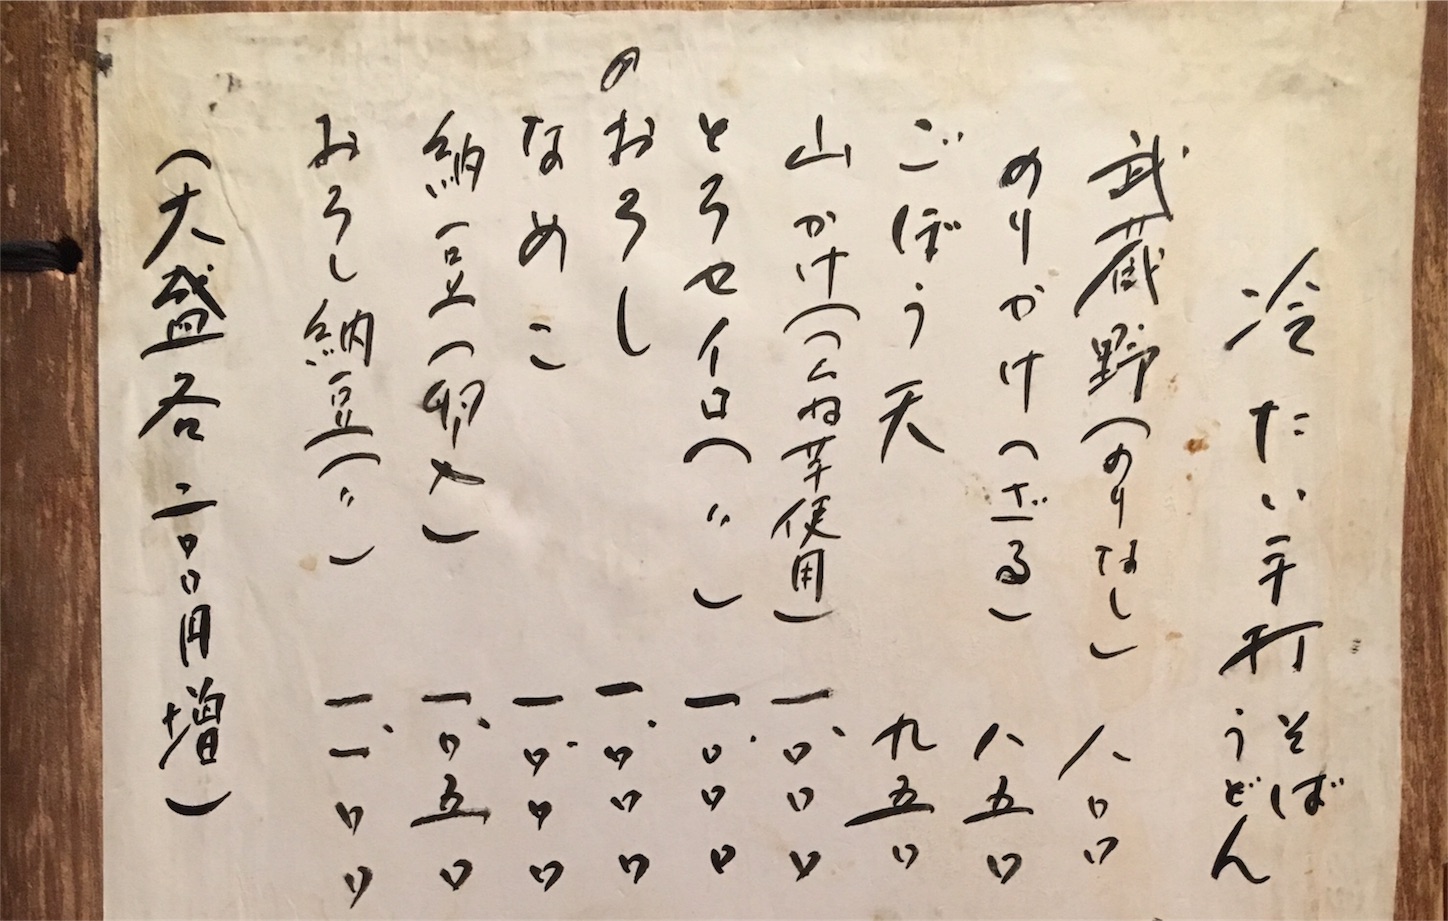 冷たい手打そばうどん
武蔵野(のりなし) 八〇〇
のりかけ(ざる) 八五〇
ごぼう天 九五〇
山かけ(つくね芋使用) 一、〇〇〇
とろセイロ(〃) 一、〇〇〇
おろし 一、〇〇〇
なめこ 一、〇〇〇
納豆(卵や) 一、〇五〇
おろし納豆(〃) 一、一〇〇
(大盛各二〇〇円増)